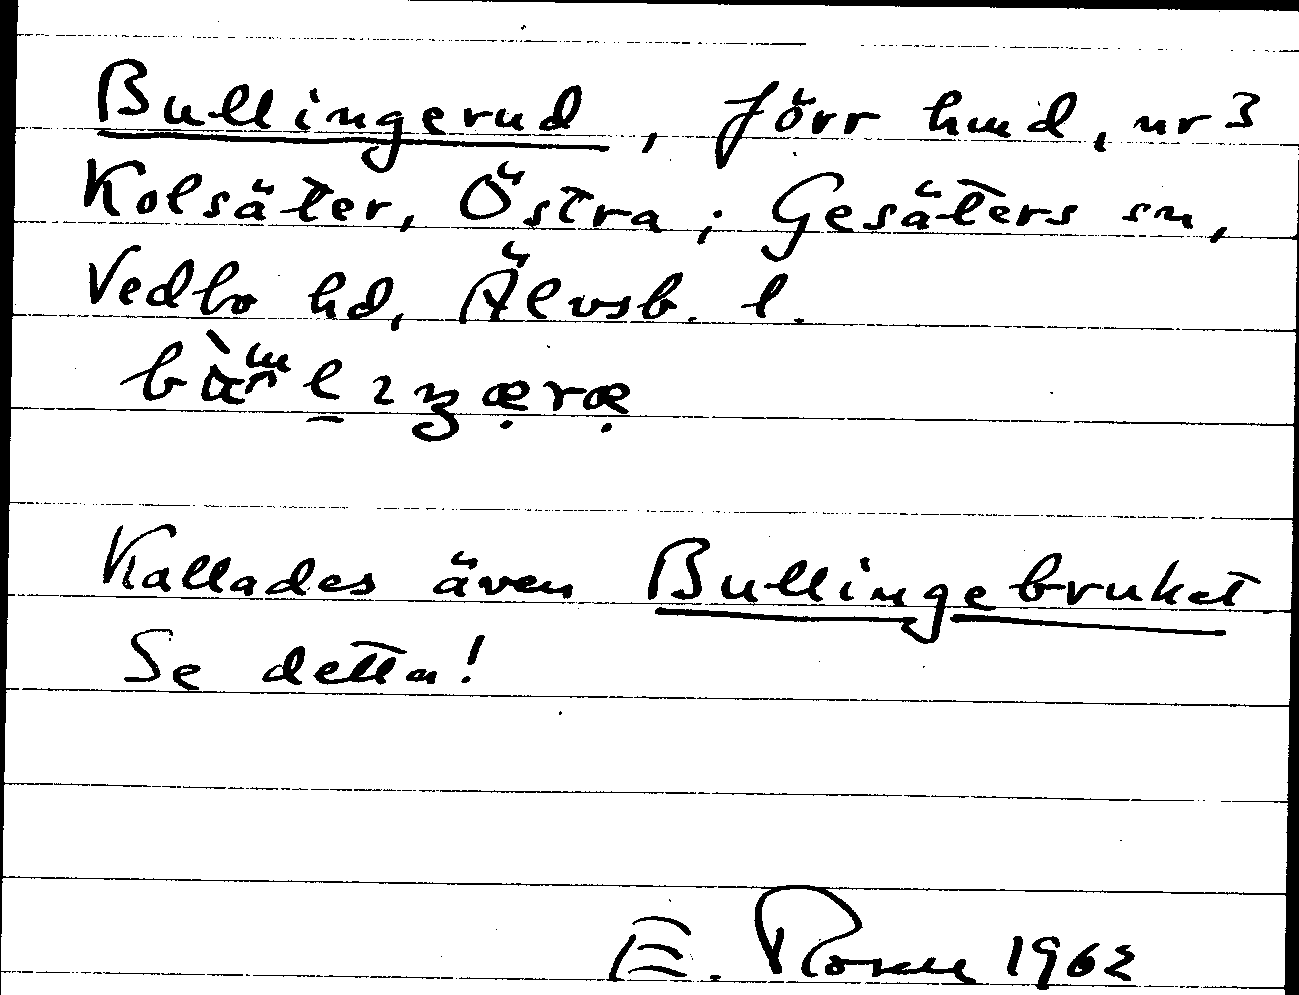 Bullingerud, förr hmd, nr 3
Kolsäter, Östra; Gesäters sn,
Vedbo hd, Älvsb. l.
Kallades även Bullingebruket
Se detta!
E. 1962